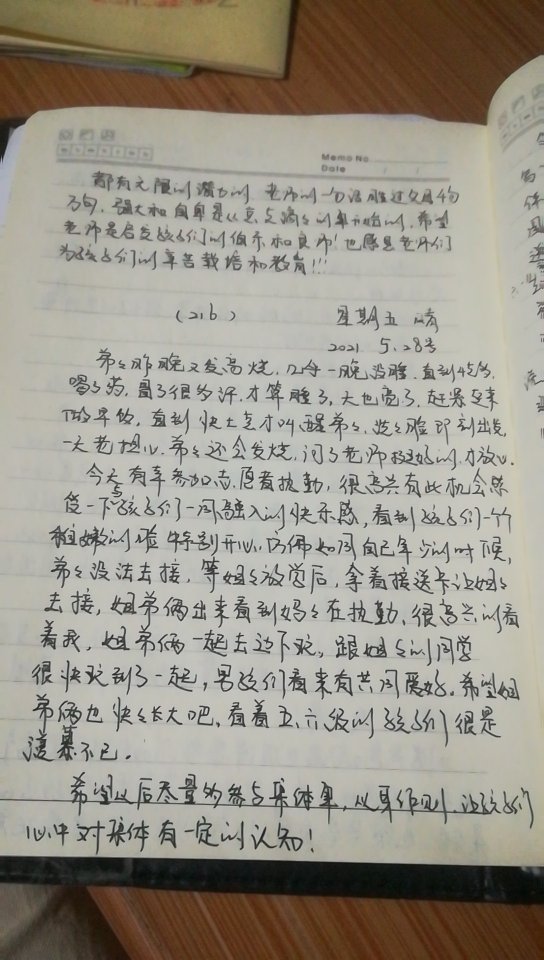 Memo No.
Date / /
都有无限的潜力的 老师的一句话胜过父母的
万句，强大和自身是从点点滴滴的事开始的，希望
老师是启发孩子们的伯乐和良师！也感恩老师们
为孩子们的辛苦栽培和教育!!!
(216) 星期五 晴
2021 5.28号
弟弟昨晚又发高烧，几乎一晚没睡，直到4点多，
喝了药，冒了很多汗，才算睡了，天也亮了，赶紧起来
做早饭，直到快七点才叫醒弟弟，洗了脸即刻出发
一天老担心弟弟还会发烧，问了老师挺好的，才放心。
今天有幸参加志愿者执勤，很高兴有此机会感
受一下与孩子们一同融入的快乐感，看到孩子们一个个
稚嫩的脸特别开心，仿佛如同自己年少的时候，
弟弟没法去接，等姐姐放学后，拿着接送卡让姐姐
去接，姐弟俩出来看到妈妈在执勤，很高兴的看
着我，姐弟俩一起去边下玩，跟姐姐的同学
很快玩到了一起，男孩们看来有共同爱好。希望姐
弟俩也快快长大吧，看着五、六级的孩子们很是
羡慕不已。
希望以后尽量的参与集体事，以身作则，让孩子们
心中对集体有一定的认知！